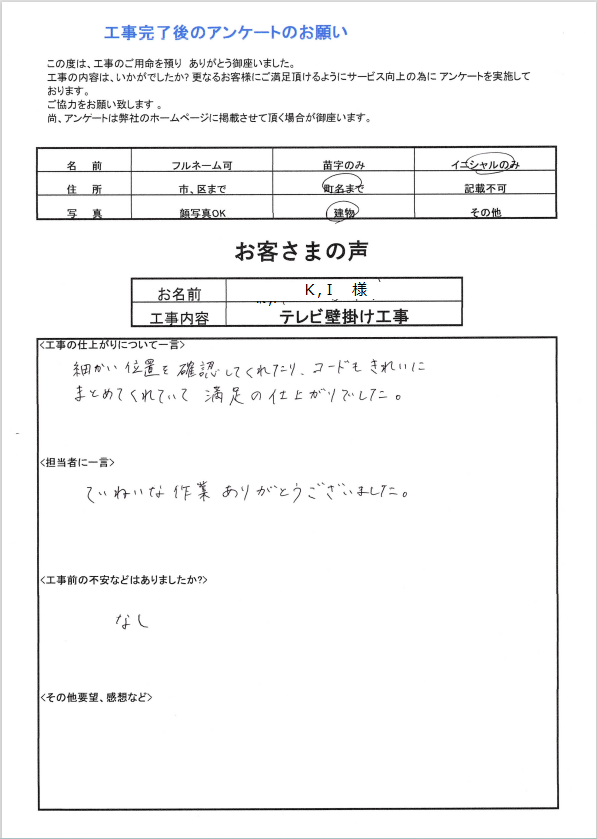 工事完了後のアンケートのお願い
この度は、工事のご用命を預り ありがとう御座いました。
工事の内容は、いかがでしたか? 更なるお客様にご満足頂けるようにサービス向上の為に アンケートを実施して
おります。
ご協力をお願い致します 。
尚、アンケートは弊社のホームページに掲載させて頂く場合が御座います。
名 前 フルネーム可 苗字のみ イニシャルのみ
住 所 市、区まで 町名まで 記載不可
写 真 顔写真OK 建物 その他
お客さまの声
お名前 K,I 様
工事内容 テレビ壁掛け工事
<工事の仕上がりについて一言>
細かい位置を確認してくれたり、コードもきれいに
まとめてくれていて 満足の仕上がりでした。
<担当者に一言>
ていねいな作業 ありがとうございました。
<工事前の不安などはありましたか?>
なし
<その他要望、感想など>